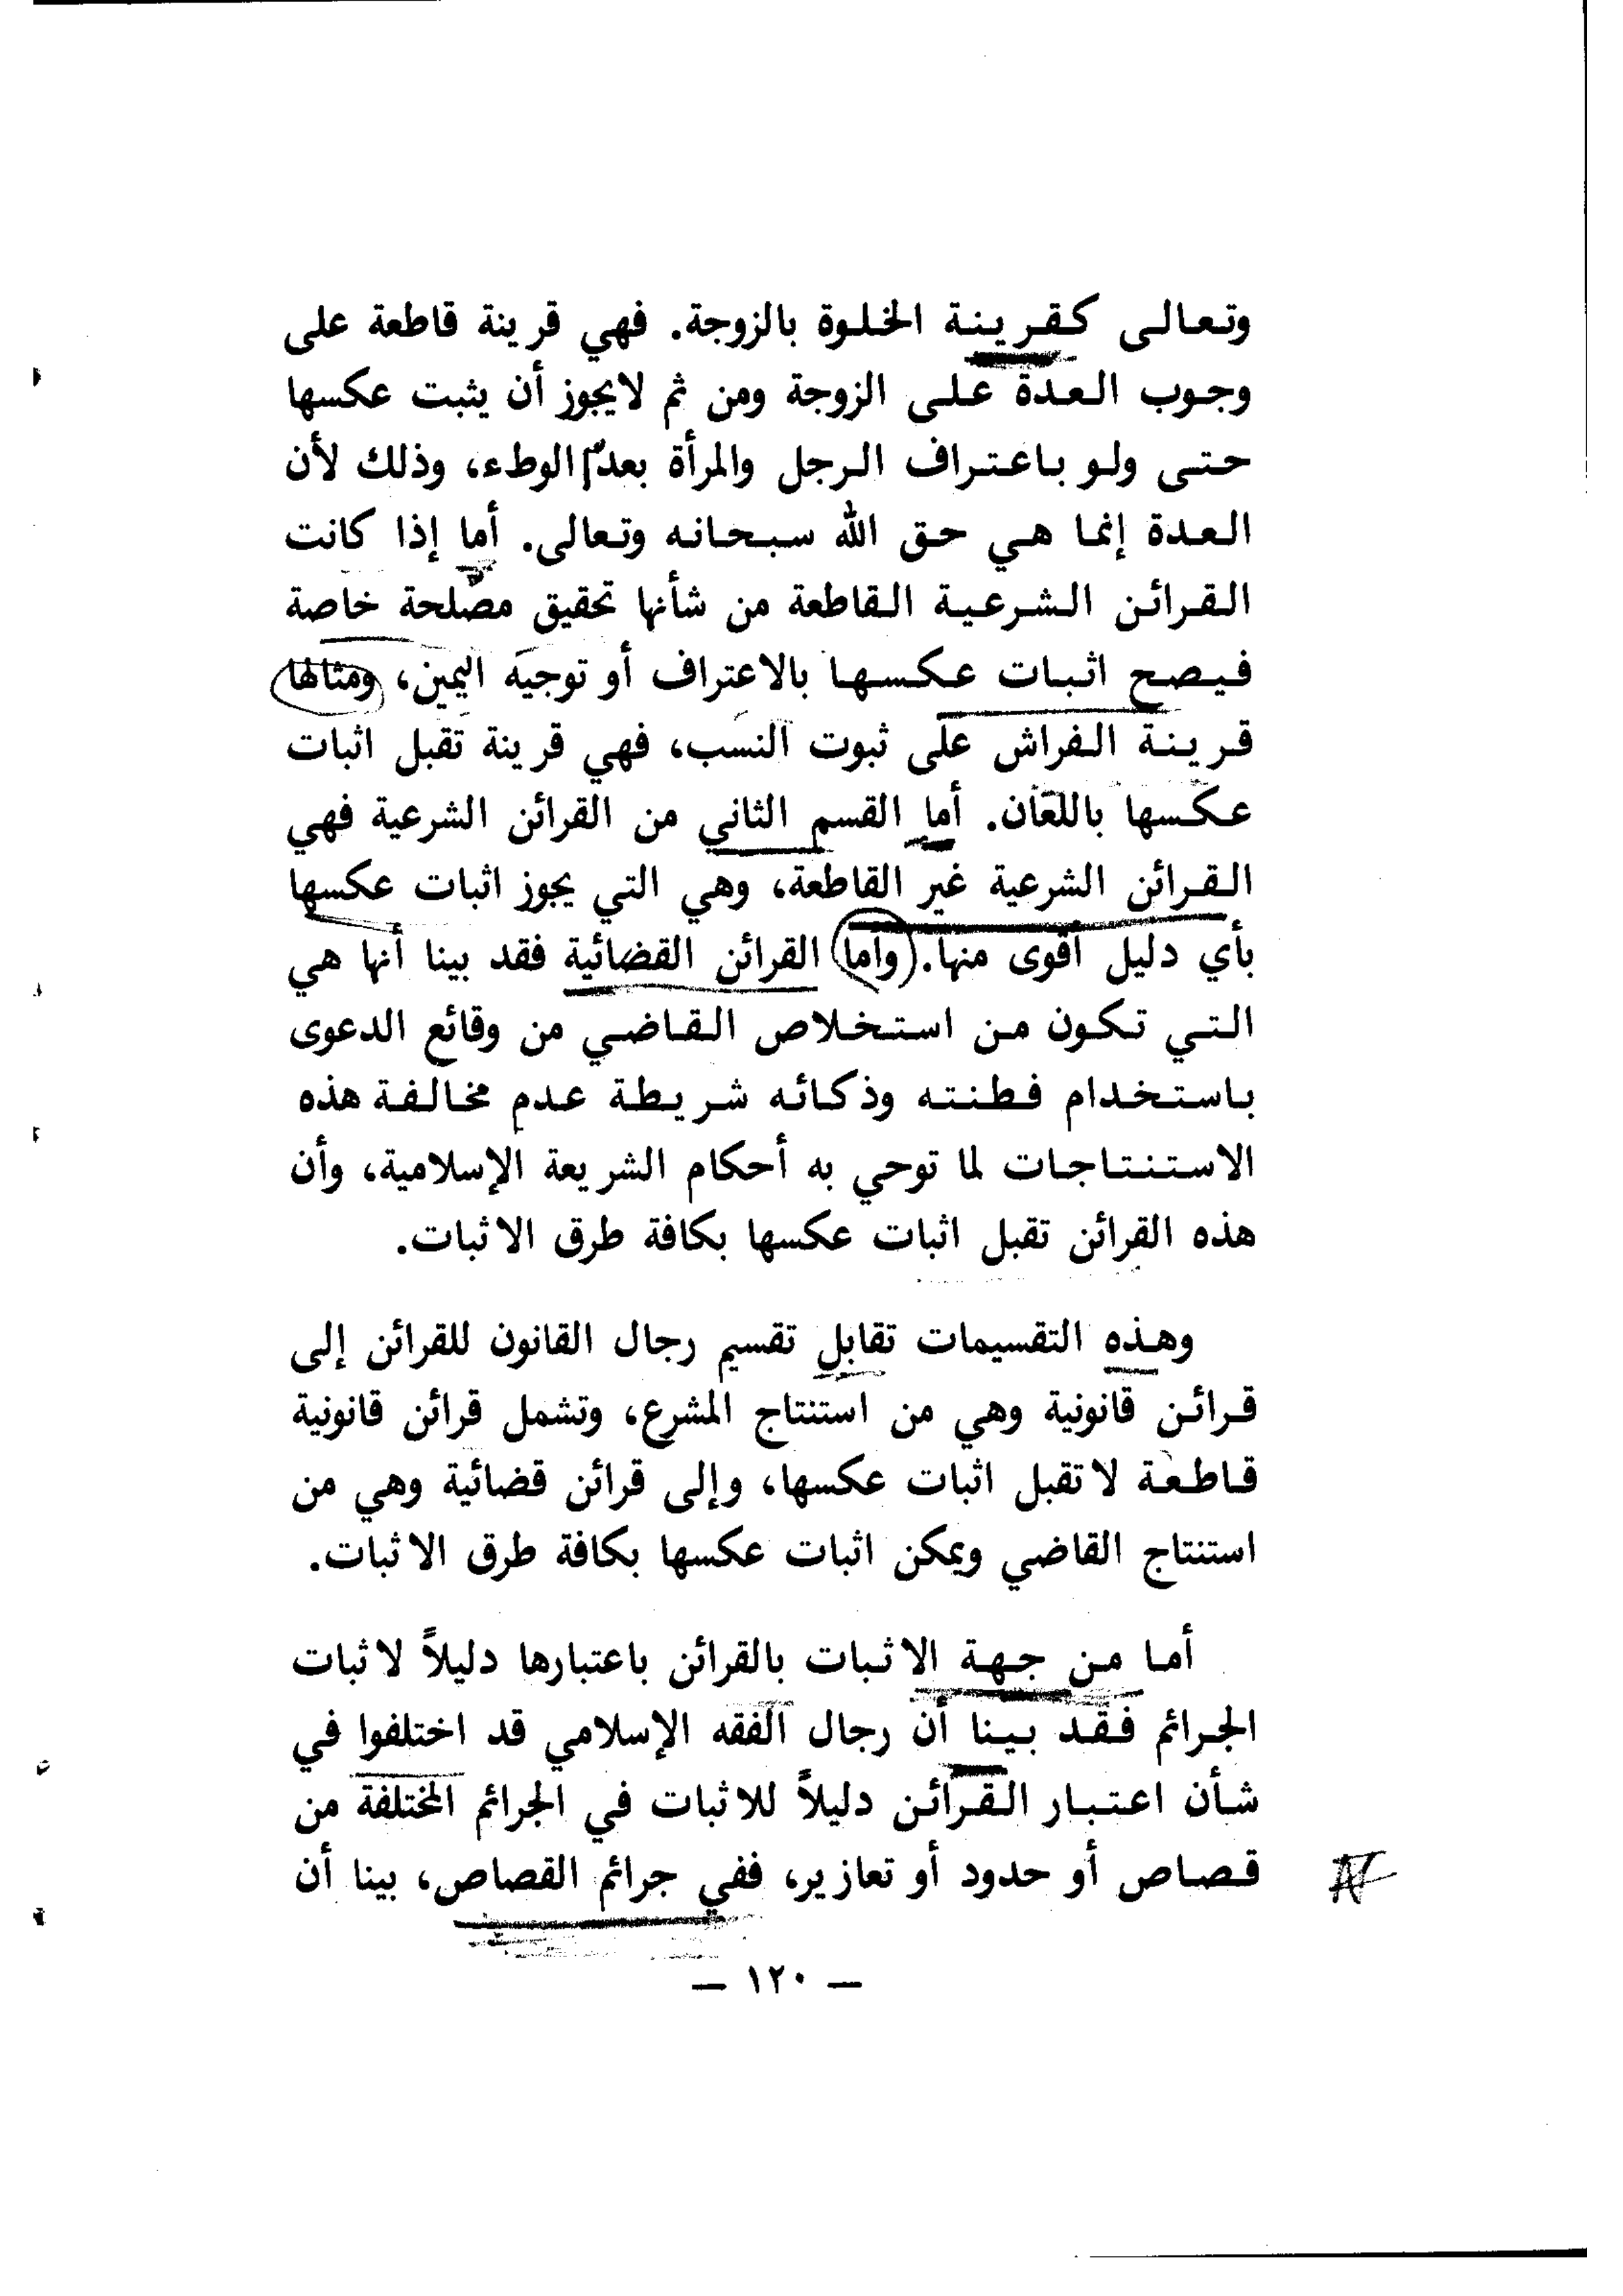 وتعالى كقرينة الخلوة بالزوجة. فهي قرينة قاطعة على
وجوب العدة على الزوجة ومن ثم لايجوز أن يثبت عكسها
حتى ولو باعتراف الرجل والمرأة بعدم الوطء، وذلك لأن
العدة إنما هي حق الله سبحانه وتعالى. أما إذا كانت
القرائن الشرعية القاطعة من شأنها تحقيق مصلحة خاصة
فيصح اثبات عكسها بالاعتراف أو توجيه اليمين، ومثالها
قرينة الفراش على ثبوت النسب، فهي قرينة تقبل اثبات
عكسها باللعان. أما القسم الثاني من القرائن الشرعية فهي
القرائن الشرعية غير القاطعة، وهي التي يجوز اثبات عكسها
بأي دليل أقوى منها. وأما القرائن القضائية فقد بينا أنها هي
التي تكون من استخلاص القاضي من وقائع الدعوى
باستخدام فطنته وذكائه شريطة عدم مخالفة هذه
الاستنتاجات لما توحي به أحكام الشريعة الإسلامية، وأن
هذه القرائن تقبل اثبات عكسها بكافة طرق الاثبات.
وهذه التقسيمات تقابل تقسيم رجال القانون للقرائن إلى
قرائن قانونية وهي من استنتاج المشرع، وتشمل قرائن قانونية
قاطعة لا تقبل اثبات عكسها، وإلى قرائن قضائية وهي من
استنتاج القاضي ويمكن اثبات عكسها بكافة طرق الاثبات.
أما من جهة الاثبات بالقرائن باعتبارها دليلاً لاثبات
الجرائم فقد بينا أن رجال الفقه الإسلامي قد اختلفوا في
شأن اعتبار القرائن دليلاً للاثبات في الجرائم المختلفة من
قصاص أو حدود أو تعازير، ففي جرائم القصاص، بينا أن
— ١٢٠ —